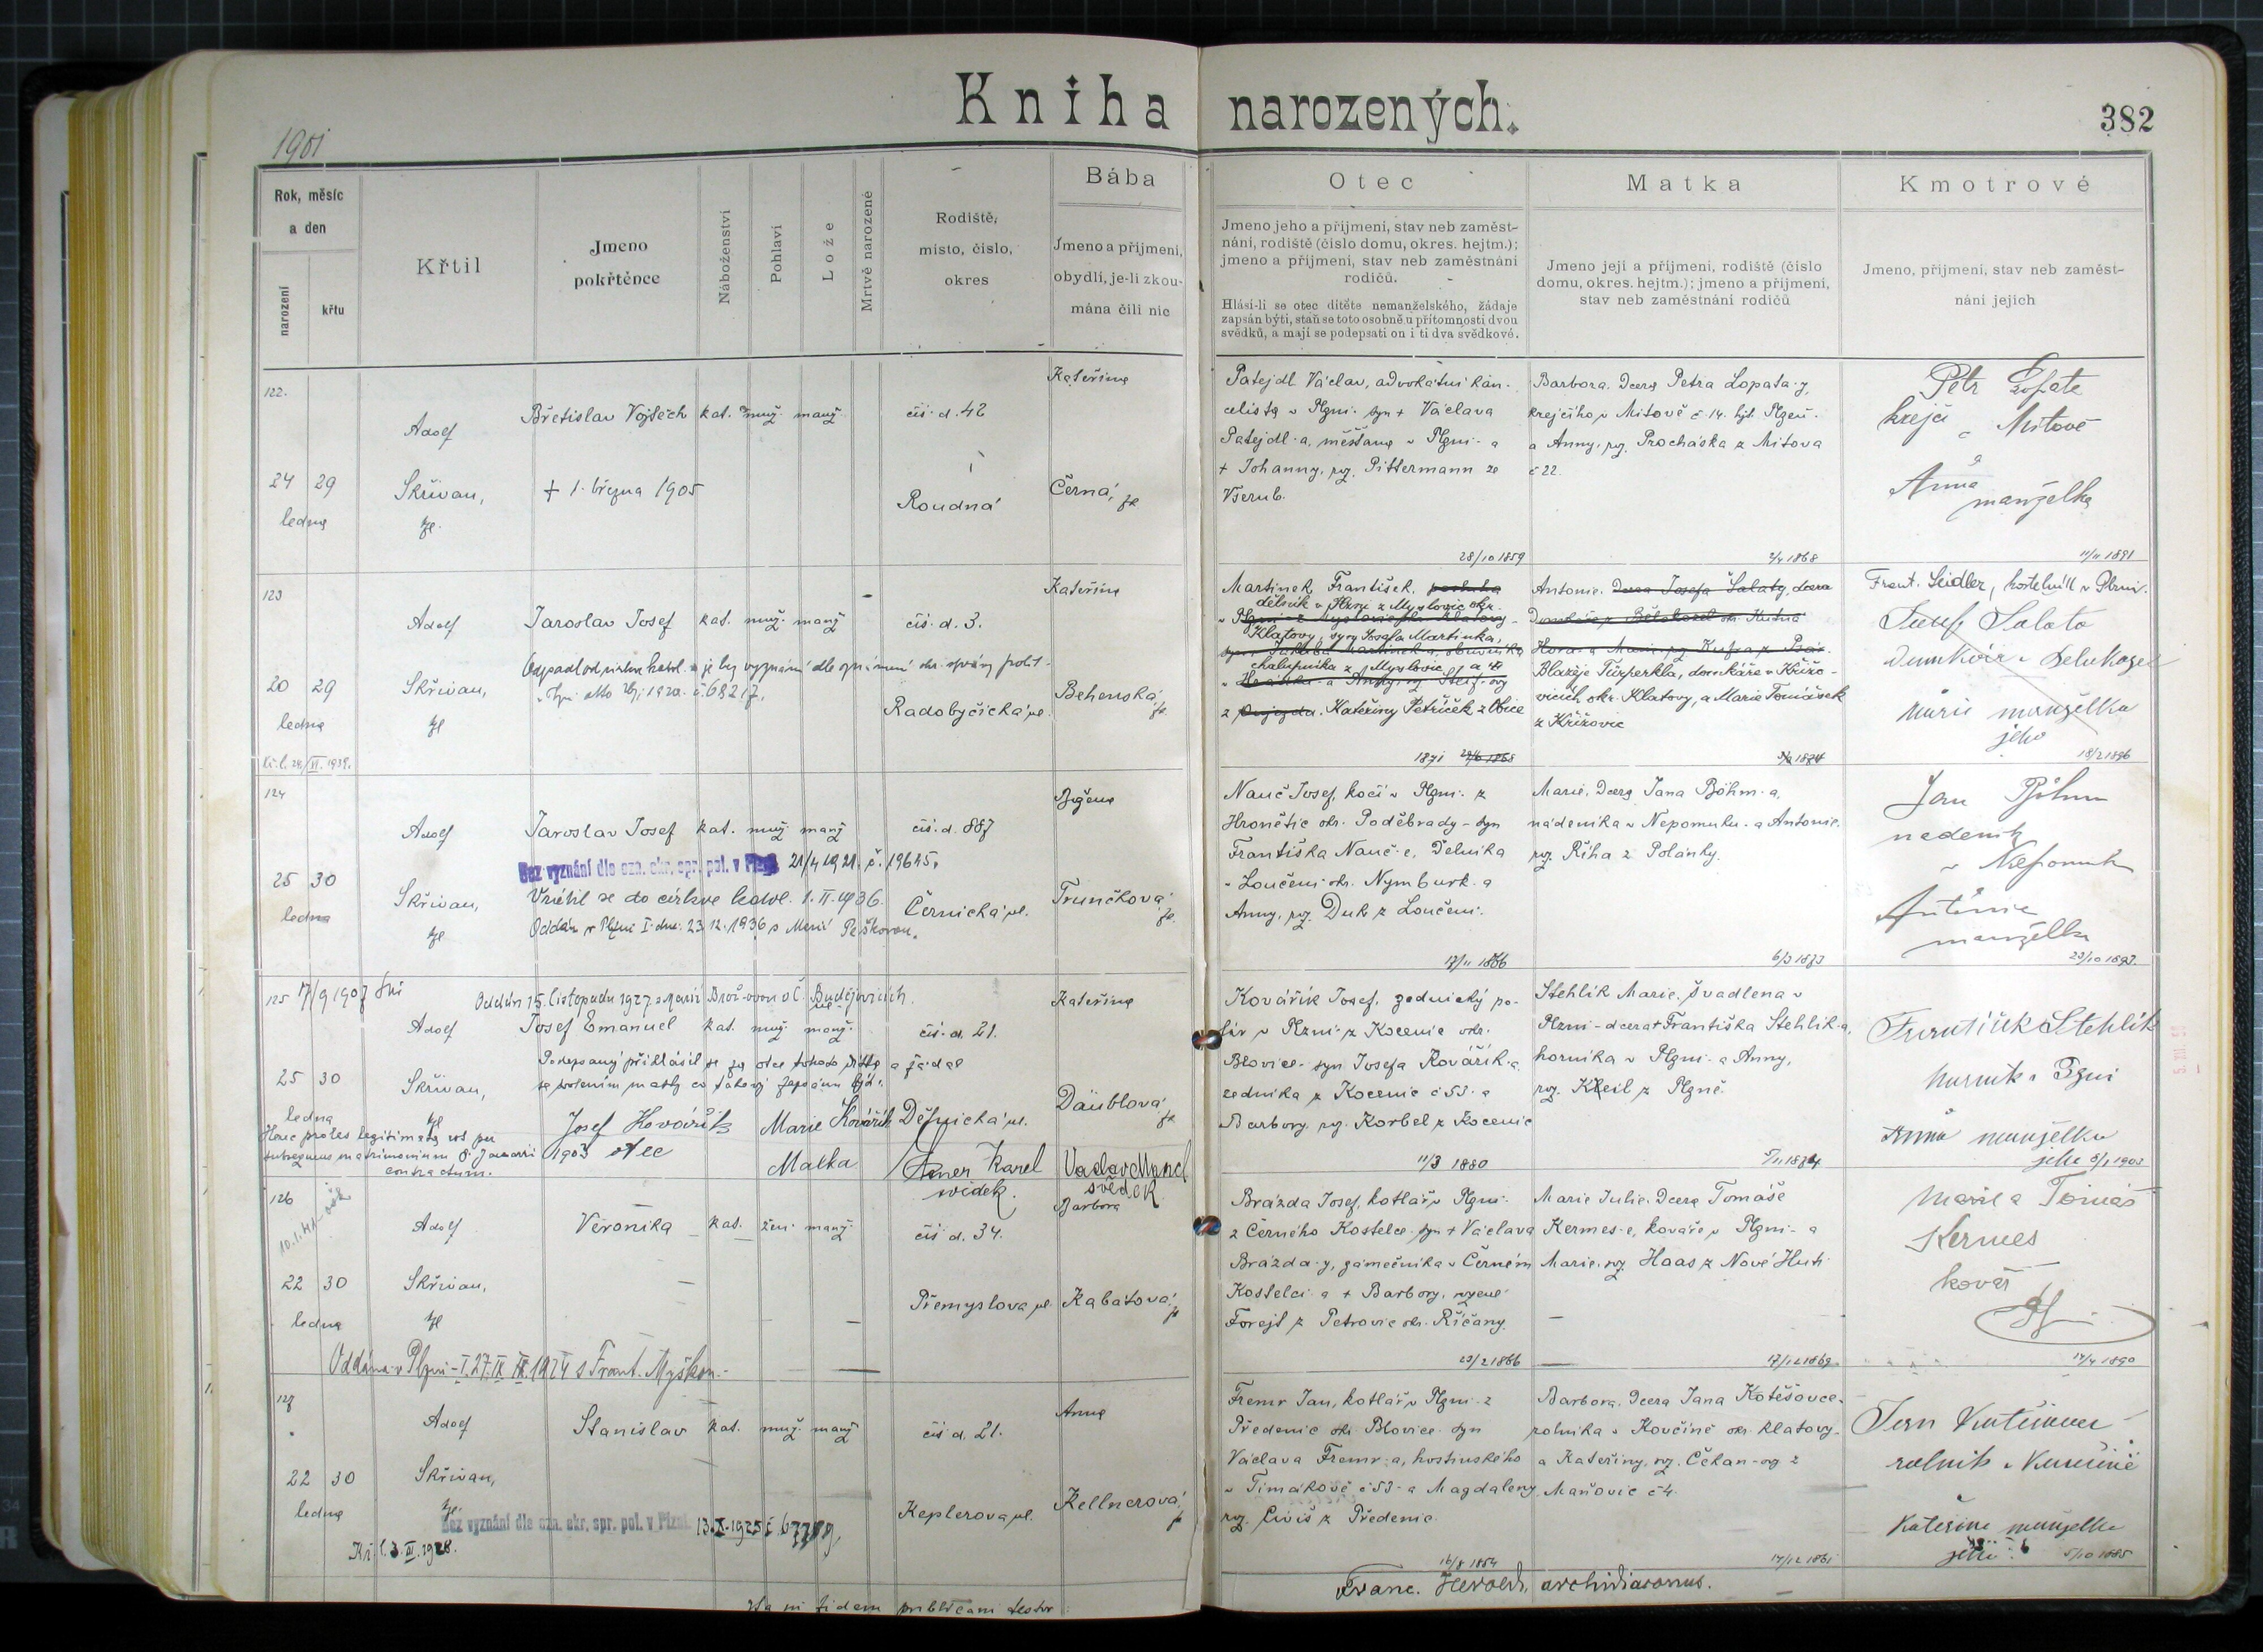 Kniha narozených.
382
1901
Rok, měsíc
a den
narození
křtu
Křtil
Jmeno
pokřtěnce
Náboženství
Pohlaví
Lože
Mrtvě narozené
Rodiště,
místo, číslo,
okres
Bába
Jmeno a příjmení,
obydlí, je-li zkou-
mána čili nic
Otec
Jmeno jeho a příjmení, stav neb zaměst-
nání, rodiště (číslo domu, okres. hejtm.);
jmeno a příjmení, stav neb zaměstnání
rodičů.
Hlásí-li se otec dítěte nemanželského, žádaje
zapsán býti, staň se toto osobně u přítomnosti dvou
svědků, a mají se podepsati on i ti dva svědkové.
Matka
Jmeno její a příjmení, rodiště (číslo
domu, okres. hejtm.); jmeno a příjmení,
stav neb zaměstnání rodičů
Kmotrové
Jmeno, příjmení, stav neb zaměst-
nání jejich
122.
24 29
ledna
Adolf
Skřivan,
Břetislav Vojtěch kat. muž. manž.
+ 1. března 1905
čís. d. 42
Roudná
Kateřina
Černá,
Patejdl Václav, advokátní kan-
celista v Plzni. syn + Václava
Patejdl-a, měšťana v Plzni a
+ Johanny, roz. Pittermann ze
Všerub.
28/10 1859
Barbora. dcera Petra Lopata-y,
krejčího v Mítově č 14. hjt. Plzeň.
a Anny, roz. Procháska z Mítova
č 22.
2/4 1868
Petr Lopata
krejčí v Mítově
Anna
manželka
11/11 1891
123
20 29
ledna
Kř. l. 28/VI. 1939.
Adolf
Skřivan,
Jaroslav Josef kat. muž. manž
Odpadl od církve katol. a je bez vyznání dle oznámení okr. správy polit.
čís. d. 3.
Radobyčická ul.
Kateřina
Behenská,
Martinek František,
dělník v Plzni z Myslovic okr.
Klatovy, syn Josefa Martínka,
chalupníka z Myslovic, a
Kateřiny Petříček z Obice
1871
Antonie.
Blažeje Türperkla, domkáře v Křížo-
vicích okr. Klatovy, a Marie Tomášek
z Křížovic
1874
Frant. Seidler, kostelník v Plzni.
Josef Salata
Marie manželka
jeho
18/2 1896
124
25 30
ledna
Adolf
Skřivan,
Jaroslav Josef kat. muž. manž
Bez vyznání dle ozn. okr. spr. pol. v Plzni 21/4 1921. č. 19645.
Vrátil se do církve katol. 1. II. 1936.
Oddán v Plzni I. dne 23. 12. 1936 s Marií Peškovou.
čís. d. 887
Černická ul.
Božena
Trunčková,
Nauč Josef, kočí v Plzni. z
Hronětic okr. Poděbrady - syn
Františka Nauč-e, dělníka
v Loučeni okr. Nymburk. a
Anny, roz. Duk z Loučeni.
17/11 1866
Marie. dcera Jana Böhm-a,
nádeníka v Nepomuku. a Antonie.
roz. Říha z Polánky.
6/3 1873
Jan Böhm
nadeník
v Nepomuk
Antonie
manželka
23/10 1893.
125
17/9 1907
25 30
ledna
Haec proles legitimata est per
subsequens matrimonium 8. Januarii 1903
contractum.
Adolf
Skřivan,
Oddán 15. listopadu 1927 s Marií Brož-ovou v Č. Budějovicích.
Josef Emanuel kat. muž. manž.
Podepsaný přihlásil se za otce tohoto dítěte a žádal
se svolením matky co takový zapsánu býti.
Josef Kovářík
otec
Marie Kovářík
Matka
čís. d. 21.
Dělnická ul.
Karel
svědek.
Kateřina
Däublová,
Vaclav Mancl
svědek
Kovářík Josef, zednický po-
lír v Plzni z Kocenic okr.
Blovice - syn Josefa Kovářík-a
zedníka z Kocenic č 53. a
Barbory roz. Korbel z Kocenic
11/3 1880
Stehlík Marie. švadlena v
Plzni - dcera + Františka Stehlík-a,
horníka v Plzni. a Anny,
roz. Kleil z Plzně.
5/11 1884
František Stehlík
horník v Plzni
Anna manželka
jeho 8/1 1903
126
22 30
ledna
Adolf
Skřivan,
Veronika kat. žen. manž.
Oddána v Plzni - I. 27. IX. 1924 s Frant. Myškou.
čís d. 34.
Přemyslova ul.
Barbora
Kabátová,
Brázda Josef, kotlář v Plzni.
z Černého Kostelce syn + Václava
Brázda-y, zámečníka v Černém
Kostelci a + Barbory, rozené
Forejt z Petrovic okr. Říčany.
23/2 1866
Marie Julie. dcera Tomáše
Kermes-e, kováře v Plzni - a
Marie, roz. Haas z Nové Huti
17/12 1869
Marie a Tomáš
Kermes
kovář
14/4 1890
127
22 30
ledna
Kř. l. 3. XI. 1928.
Adolf
Skřivan,
Stanislav kat. muž. manž
Bez vyznání dle ozn. okr. spr. pol. v Plzni
čís d. 21.
Keplerova ul.
Anna
Kellnerová,
Fremr Jan, kotlář v Plzni. z
Předenic okr. Blovice. syn
Václava Fremr-a, hostinského
v Tímákově č 53 a Magdaleny,
roz. Civiš z Předenic.
16/8 1854
Barbora. dcera Jana Kotěšovce.
rolníka v Kovčíně okr. Klatovy.
a Kateřiny, roz. Čekan-og z
Maňovic č 4.
17/12 1861
rolník v Kovčíně
Kateřina manželka
jeho. 5/10 1885
Franc. Herold, archidiaconus.